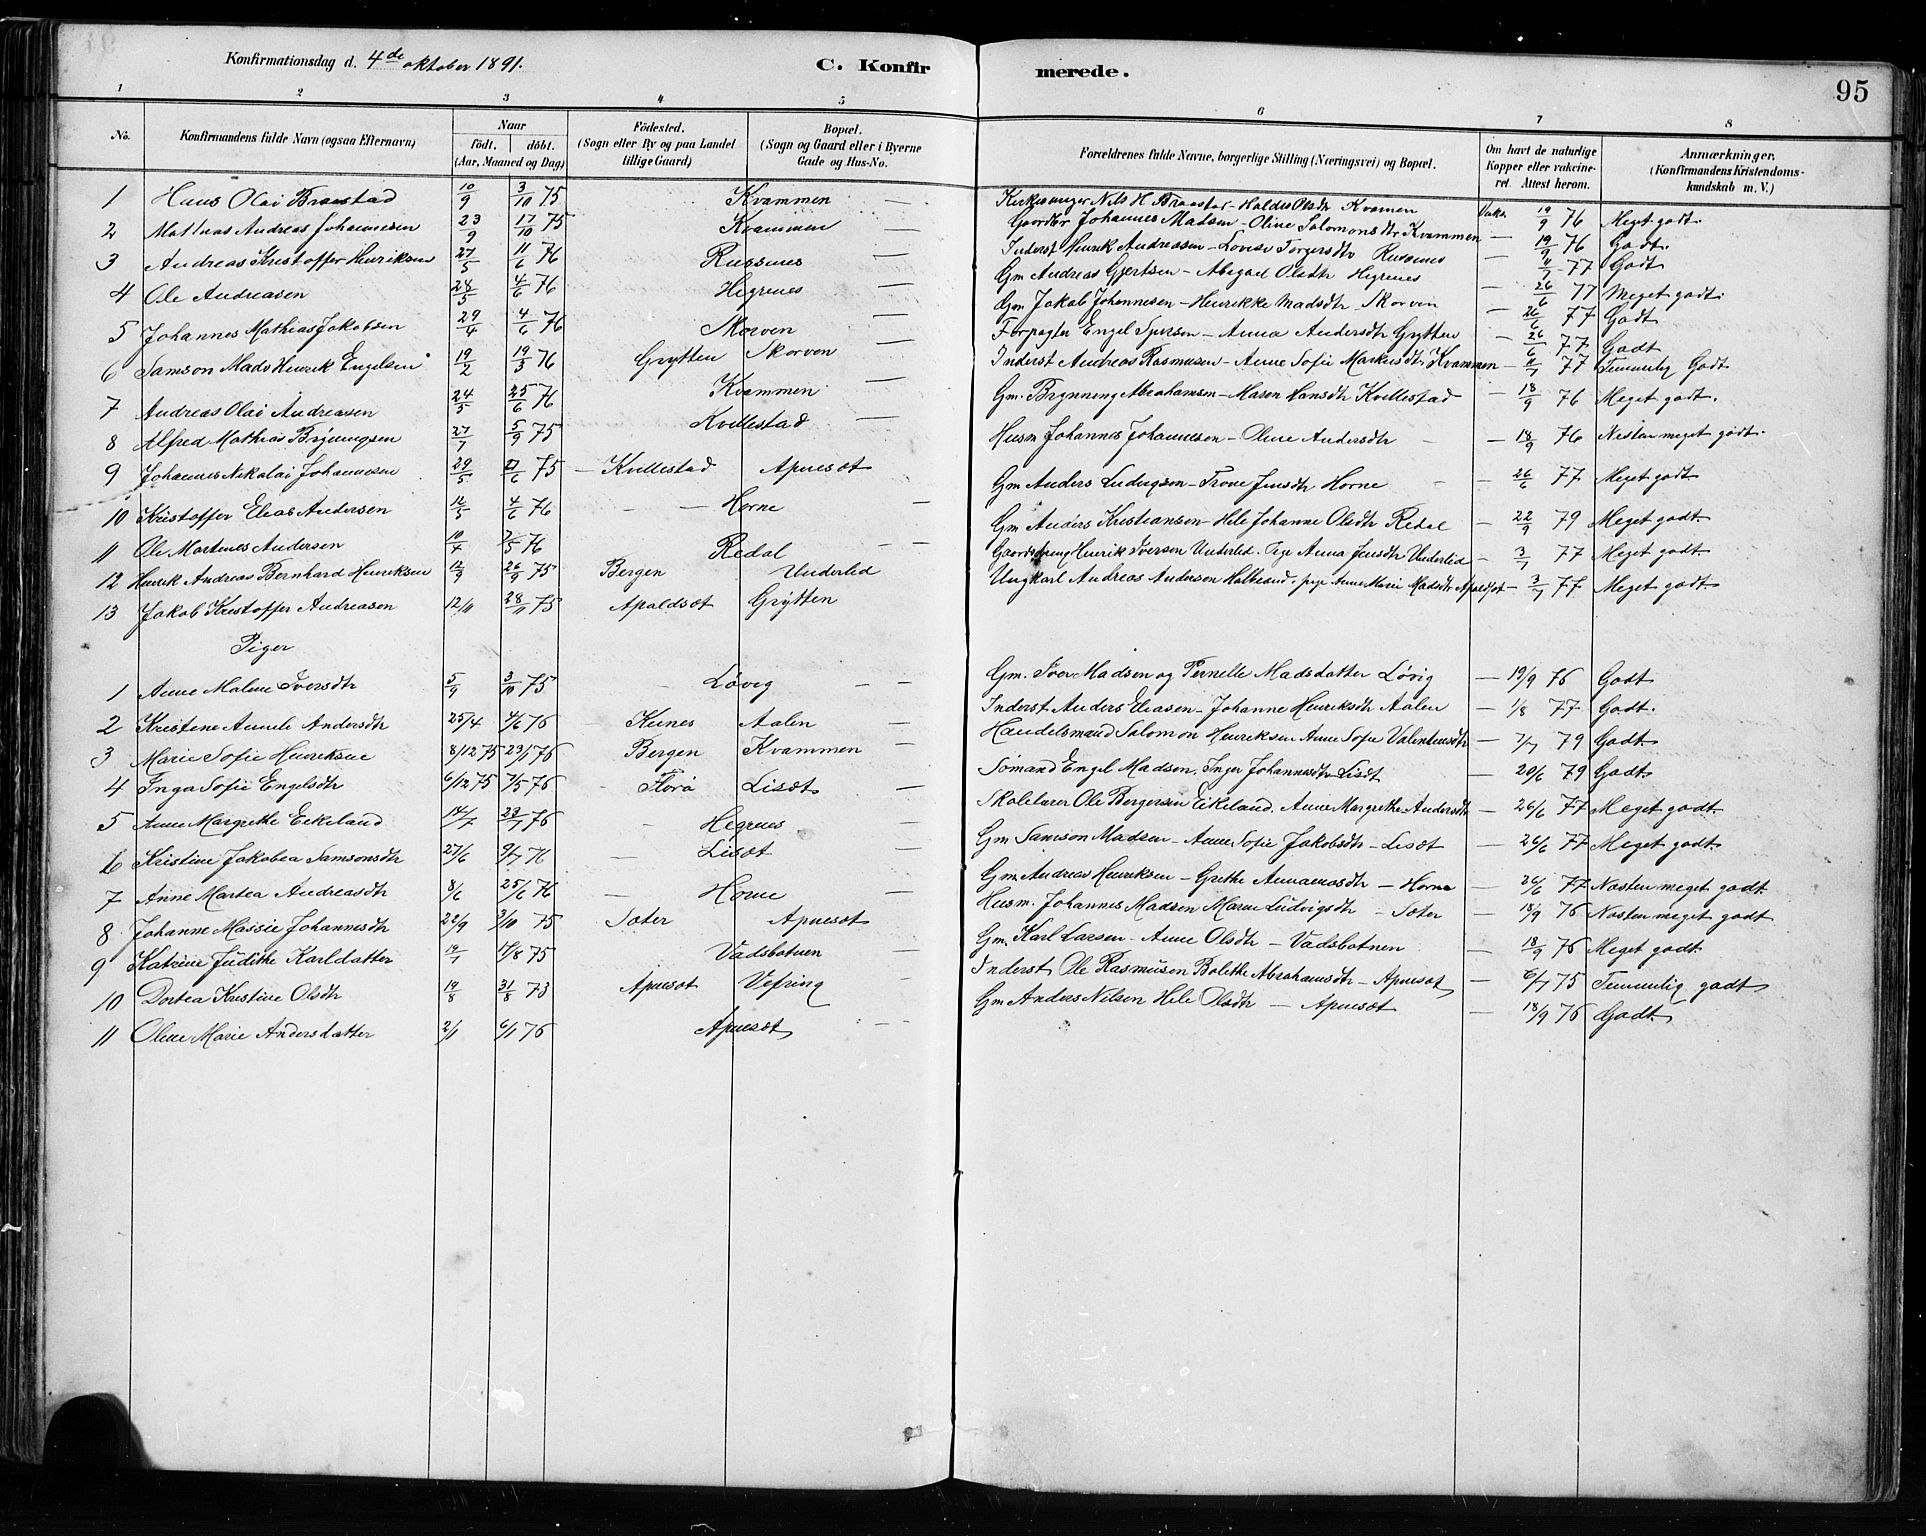 Konfirmationsdag d. 4de oktober 1891. C. Konfirmerede. 95
1 2 3 4 5 6 7 8
No. Konfirmandens fulde Navn (ogsaa Efternavn) Naar født. døbt. (Aar, Maaned og Dag) Fødested. (Sogn eller By og paa Landet tillige Gaard) Bopæl. (Sogn og Gaard eller i Byerne Gade og Hus-No. Forældrenes fulde Navne, borgerlige Stilling (Næringsvei) og Bopæl. Om havt de naturlige Kopper eller vakcineret. Attest herom. Anmærkninger. (Konfirmandens Kristendomskundskab m. V.)
1 Hans Olai Braestad 10/9 3/10 75 Kvammen — Kirkesanger Nils H. Braestad - Olsdtr Kvamen Vakc. 19/9 76 Meget godt
2 Mathias Andreas Johannesen 23/9 17/10 75 Kvammen — Gaardbr Johannes Madsen - Oline Salomonsdtr Kvammen — 19/9 76 Godt.
3 Andreas Kristoffer Henriksen 27/5 11/6 76 Russenes — Inderst Henrik Andreasen - Lovise Torgersdtr Russenes — 11/7 77 Godt
4 Ole Andreasen 28/5 4/6 76 Hegrenes — Gm Andreas Gjertsen - Abigael Olsdtr Hegrenes — 26/6 77 Meget godt
5 Johannes Mathias Jakobsen 29/4 4/6 76 Skorven — Gm Jakob Johannesen - Henrikke Madsdtr Skorven — 26/6 77 Godt
6 Samson Mads Henrik Engelsen 19/2 19/3 76 Grytten Skorven — Forpagter Engel Iversen - Anna Andersdtr Grytten — 26/6 77 Godt
7 Andreas Olai Andreasen 24/5 25/6 76 Kvammen — Inderst Andreas Rasmusen - Anne Sofie Markusdtr Kvammen — 11/7 77 Temmelig Godt
8 Alfred Mathias Bryningsen 27/7 5/9 75 Kvillestad — Gm. Brynning Abrahamsen - Maren Hansdtr Kvillestad — 18/9 76 Meget godt.
9 Johannes Nikolai Johannesen 29/5 27/6 75 — Kvillestad Apnesæt Husm Johannes Johannesen - Oline Andersdtr — 18/9 76 Nesten meget godt.
10 Kristoffer Elias Andersen 12/5 4/6 76 — Horne — Gm Anders Ludvigsen - Trone Jensdtr Horne — 26/6 77 Meget godt
11 Ole Martines Andersen 10/4 7/5 76 Redal — Gm Anders Kristiansen - Hele Johanne Olsdtr Redal — 22/9 79 Meget godt.
12 Henrik Andreas Bernhard Henriksen 12/9 26/9 75 Bergen Underlid Gaardsdreng Henrik Iversen Underlid. Pige Anna Jensdtr Underlid — 3/7 77 Meget godt
13 Jakob Kristoffer Andreasen 12/11 28/11 75 Apaldsæt Grytten Ungkarl Andreas Andersen Halbrend, pige Anne Marie Madsdtr Apaldsæt — 3/7 77 Meget godt.
Piger
1 Anne Malene Iversdtr 5/9 3/10 75 — Løvig — Gm. Iver Madsen og Pernelle Madsdatter Løvig — 19/9 76 Godt
2 Kristene Amalie Andersdtr 25/4 4/6 76 Aalen — Inderst Anders Eleasen - Johanne Henriksdtr Aalen — 1/8 77 Godt.
3 Marie Sofie Henriksen 8/12 75 23/1 76 Bergen Kvammen — Handelsmand Salomon Henriksen Anne Sofie Valentinsdtr — 7/7 79 Godt.
4 Inga Sofie Engelsdtr 6/12 75 7/5 76 — Florø Lisæt — Sømand Engel Madsen. Inger Johannesdtr Lisæt — 20/6 79 Godt
5 Anne Margrethe Eikeland 14/7 23/7 76 — Hegrenes — Skolelærer Ole Børgersen Eikeland. Anne Margrethe Andersdtr — 26/6 77 Meget godt
6 Kristine Jakobea Samsonsdtr 27/6 9/7 76 — Lisæt — Gm Samson Madsen - Anne Sofie Jakobsdtr - Lisæt — 26/6 77 Meget godt.
7 Anne Martea Andreasdtr 8/6 25/6 76 — Horne — Gm Andreas Henriksen - Grethe - Horne — 26/6 77 Nesten meget godt
8 Johanne Massie Johannesdtr 22/9 3/10 75 Sæter Apnesæt Husm. Johannes Madsen Marne Ludvigsdtr - Sæter — 18/9 76 Nesten meget godt
9 Katrine Judithe Karldatter 19/7 15/8 75 Vadsbotnen Gm. Karl Larsen - Anne Olsdtr - Vadsbotnen — 18/9 76 Meget godt
10 Dortea Kristine Olsdtr 19/8 31/8 73 Apnesæt Vefring — Inderst Ole Rasmusen Bolethe Abrahamsdtr - Apnesæt — 6/7 75 Temmelig godt
11 Oline Marie Andersdatter 2/1 6/1 76 Apnesæt — Gm Anders Nilsen Hele Olsdtr — Apnesæt — 18/9 76 Godt